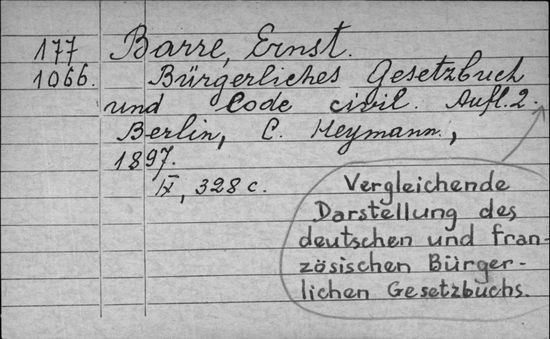 177 Barre, Ernst.
1066. Bürgerliches Gesetzbuch
und Code civil. Aufl. 2.
Berlin, C. Heymann.,
1897.
IX, 328 c.
Vergleichende
Darstellung des
deutschen und fran-
zösischen Bürger-
lichen Gesetzbuchs.